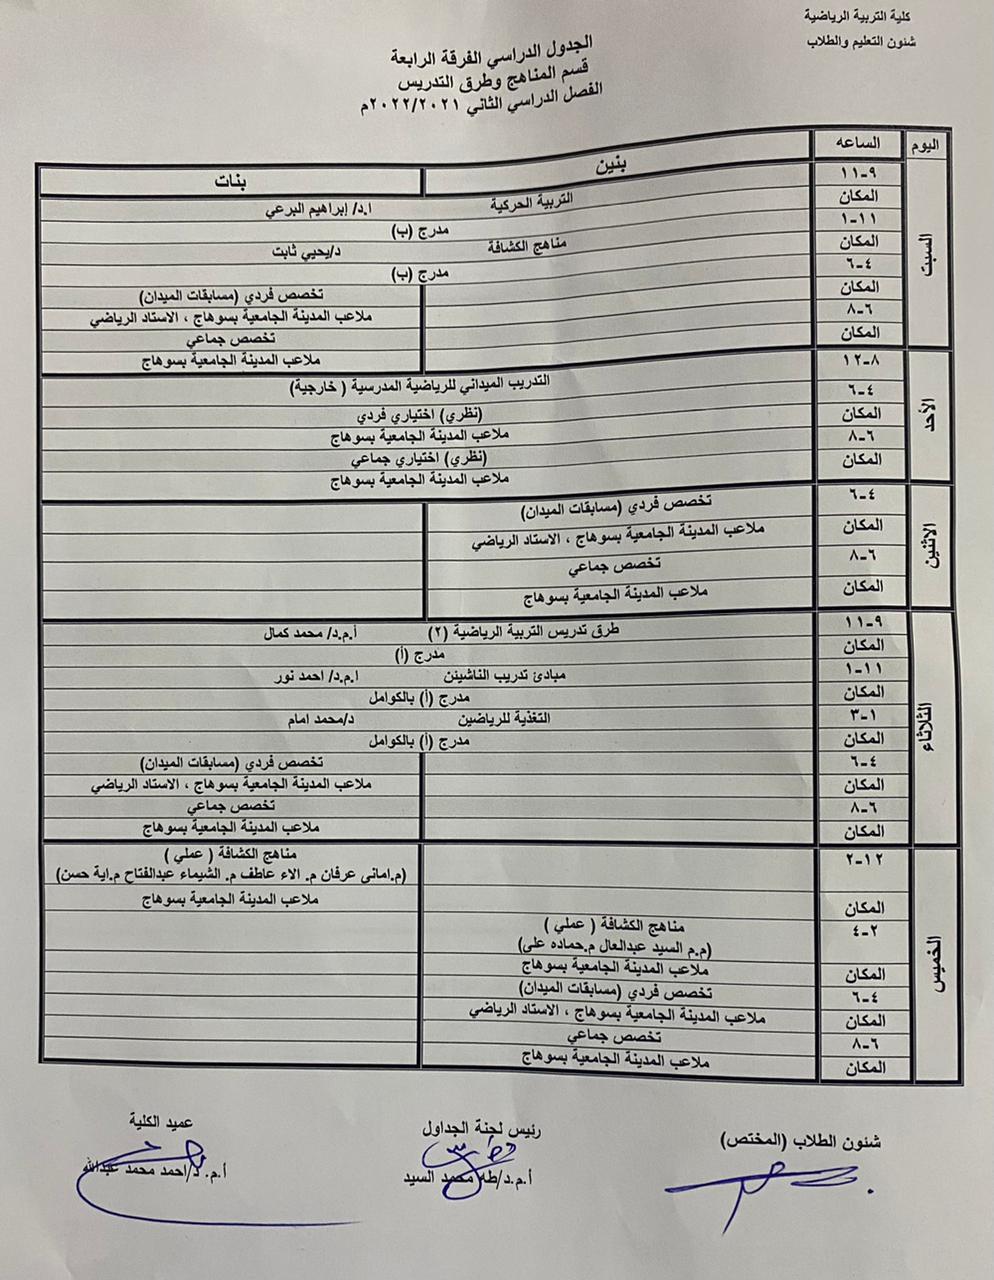 كلية التربية الرياضية
شئون التعليم والطلاب
الجدول الدراسي الفرقة الرابعة
قسم المناهج وطرق التدريس
الفصل الدراسي الثاني ٢٠٢٢/٢٠٢١م
اليوم الساعه بنين بنات
السبت
٩-١١ التربية الحركية ا.د/ إبراهيم البرعي
المكان مدرج (ب)
١١-١ مناهج الكشافة د/يحيي ثابت
المكان مدرج (ب)
٤-٦ تخصص فردي (مسابقات الميدان)
المكان ملاعب المدينة الجامعية بسوهاج ، الاستاد الرياضي
٦-٨ تخصص جماعي
المكان ملاعب المدينة الجامعية بسوهاج
الأحد
٨-١٢ التدريب الميداني للرياضية المدرسية ( خارجية)
٤-٦ (نظري) اختياري فردي
المكان ملاعب المدينة الجامعية بسوهاج
٦-٨ (نظري) اختياري جماعي
المكان ملاعب المدينة الجامعية بسوهاج
الاثنين
٤-٦ تخصص فردي (مسابقات الميدان)
المكان ملاعب المدينة الجامعية بسوهاج ، الاستاد الرياضي
٦-٨ تخصص جماعي
المكان ملاعب المدينة الجامعية بسوهاج
الثلاثاء
٩-١١ طرق تدريس التربية الرياضية (٢) أ.م.د/ محمد كمال
المكان مدرج (أ)
١١-١ مبادئ تدريب الناشيئن ا.م.د/ احمد نور
المكان مدرج (أ) بالكوامل
١-٣ التغذية للرياضين د/محمد امام
المكان مدرج (أ) بالكوامل
٤-٦ تخصص فردي (مسابقات الميدان)
المكان ملاعب المدينة الجامعية بسوهاج ، الاستاد الرياضي
٦-٨ تخصص جماعي
المكان ملاعب المدينة الجامعية بسوهاج
الخميس
١٢-٢ مناهج الكشافة ( عملي )
(م.امانى عرفان م. الاء عاطف م. الشيماء عبدالفتاح م.اية حسن)
المكان ملاعب المدينة الجامعية بسوهاج
٢-٤ مناهج الكشافة ( عملي )
(م.م السيد عبدالعال م.حماده على)
المكان ملاعب المدينة الجامعية بسوهاج
٤-٦ تخصص فردي (مسابقات الميدان)
المكان ملاعب المدينة الجامعية بسوهاج ، الاستاد الرياضي
٦-٨ تخصص جماعي
المكان ملاعب المدينة الجامعية بسوهاج
شئون الطلاب (المختص) رئيس لجنة الجداول عميد الكلية
أ.م.د/طه محمد السيد أ.م. د/احمد محمد عبدالله